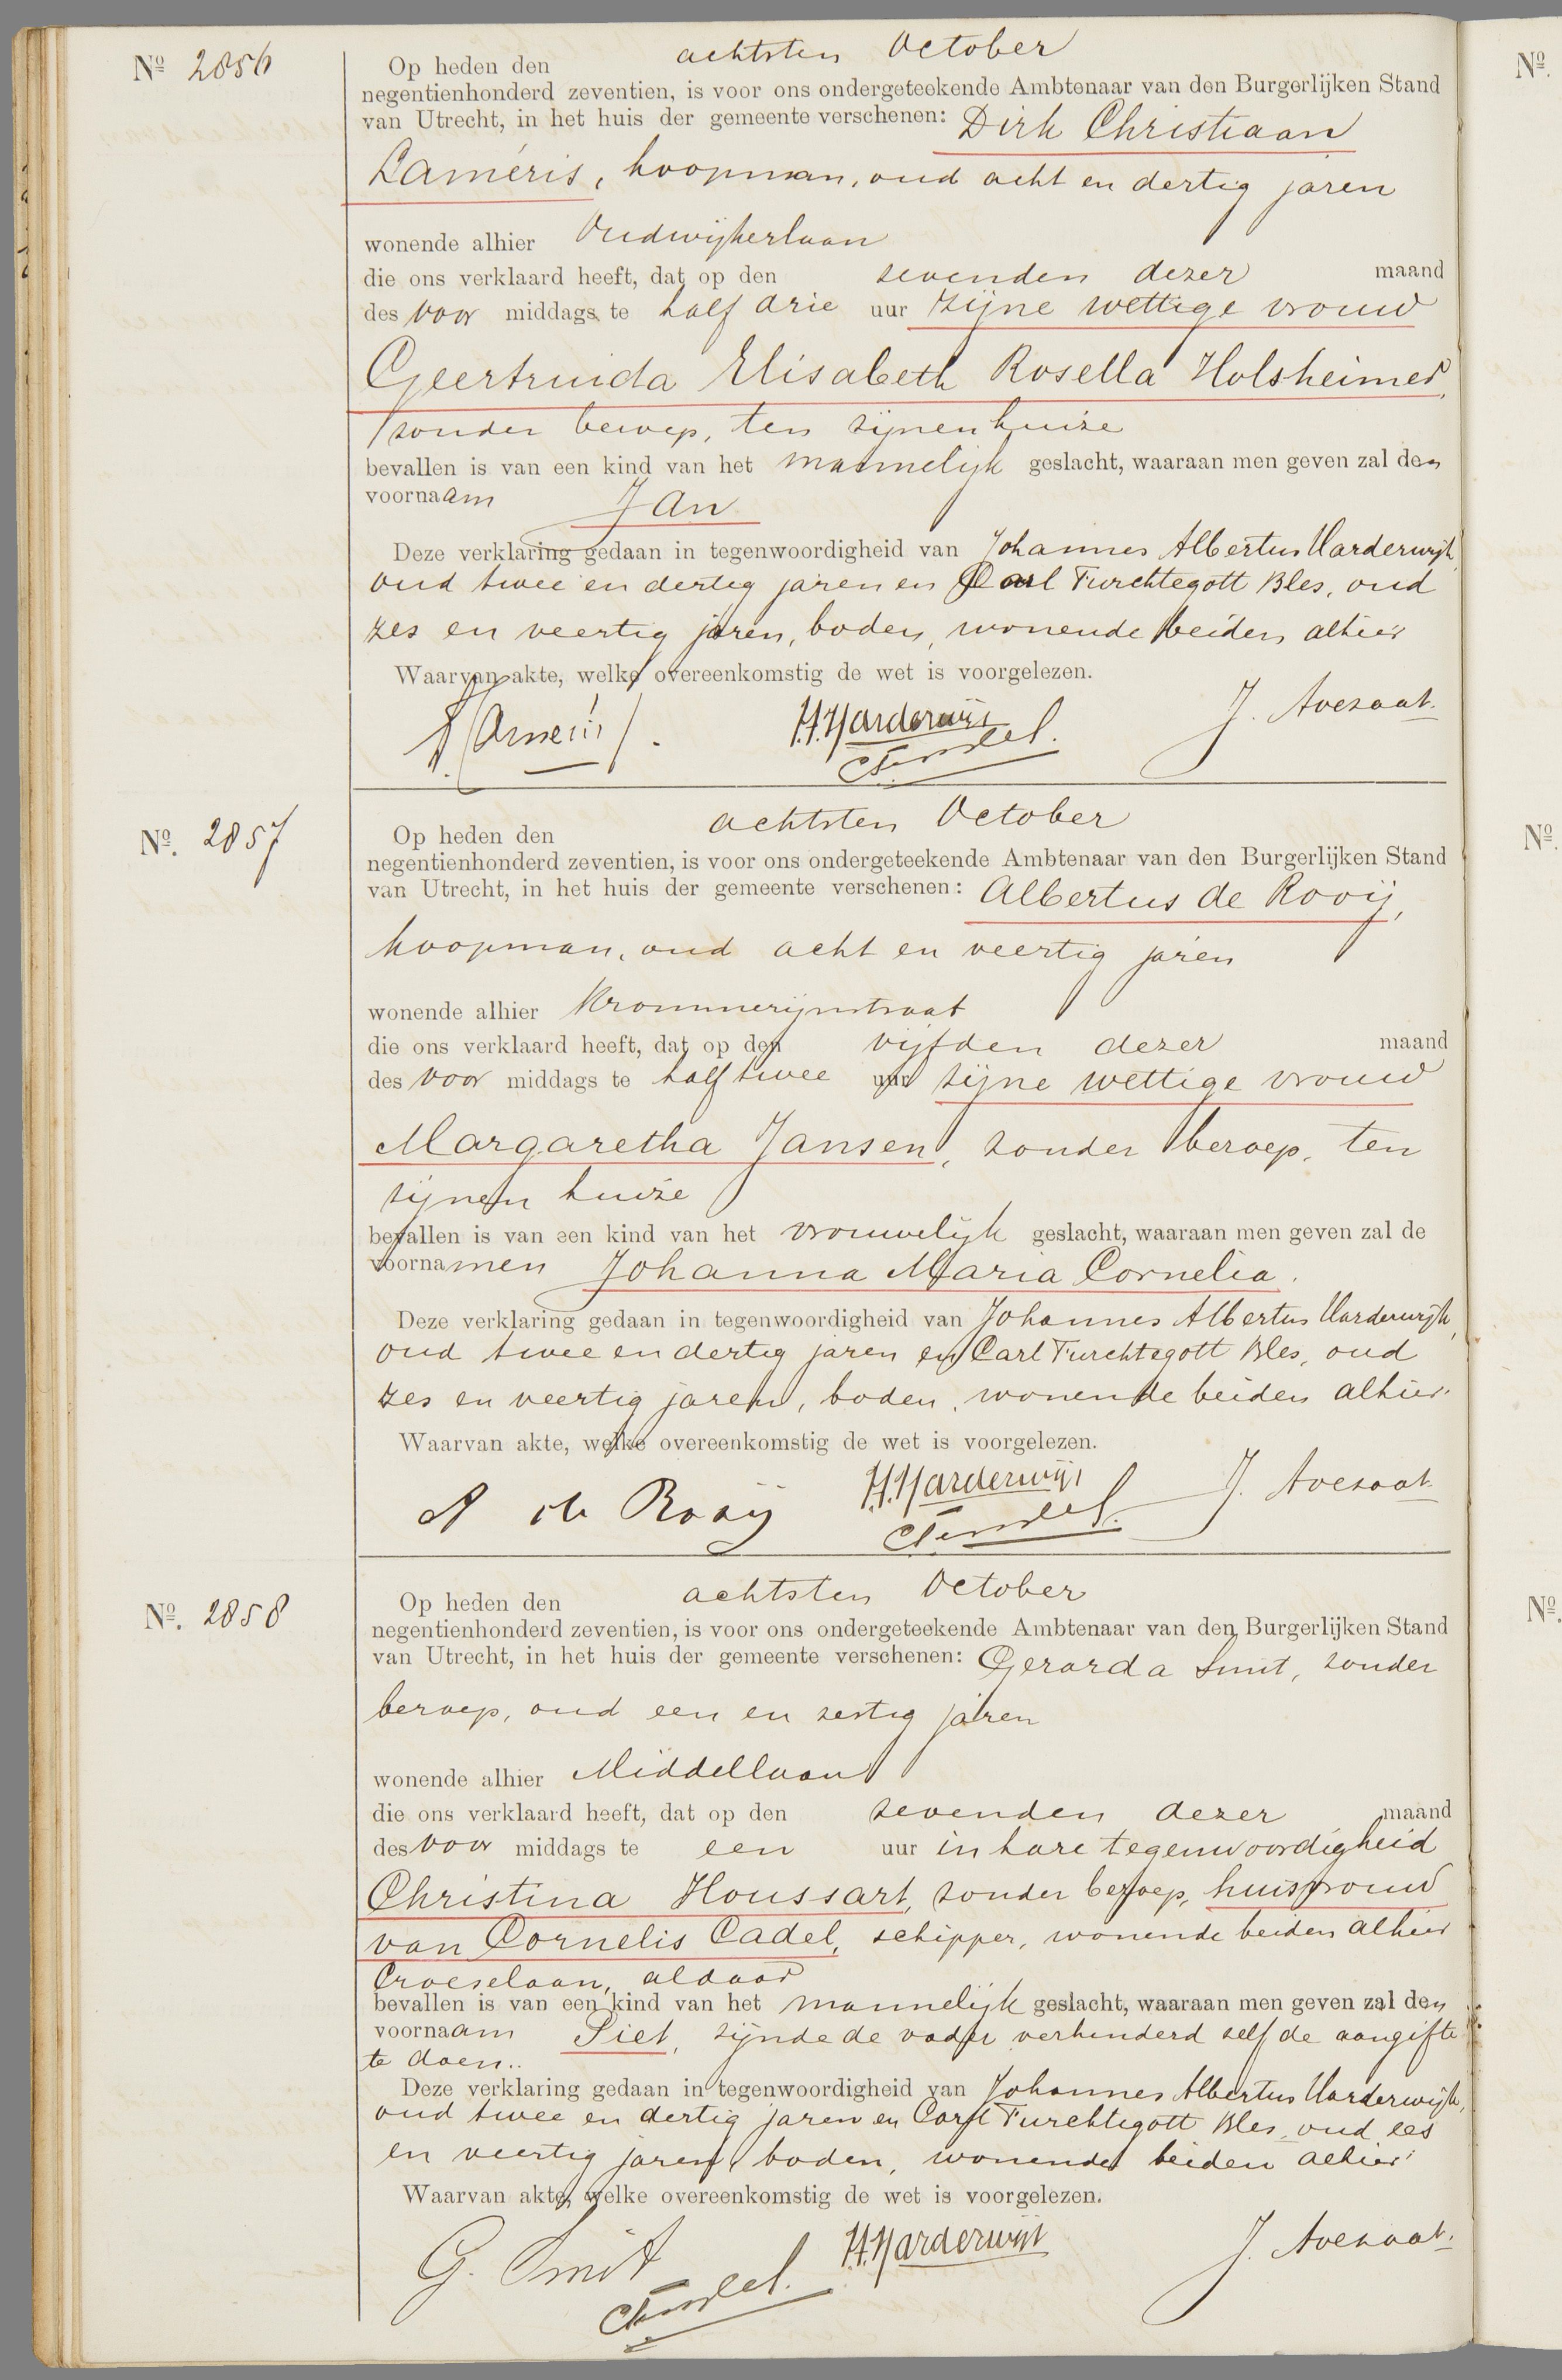 Nº 2856
Op heden den achtsten October
negentienhonderd zeventien, is voor ons ondergeteekende Ambtenaar van den Burgerlijken Stand
van Utrecht, in het huis der gemeente verschenen: Dirk Christiaan
Laméris, koopman, oud acht en dertig jaren
wonende alhier Oudwijkerlaan
die ons verklaard heeft, dat op den zevenden dezer maand
des voor middags te half drie uur zijne wettige vrouw
Geertruida Elisabeth Rosella Holsheimer,
zonder beroep, ten zijnen huize
bevallen is van een kind van het mannelijk geslacht, waaraan men geven zal den
voornaam Jan
Deze verklaring gedaan in tegenwoordigheid van Johannes Albertus Harderwijk,
oud twee en dertig jaren en Carl Furchtegott Bles, oud
zes en veertig jaren, boden, wonende beiden alhier
Waarvan akte, welke overeenkomstig de wet is voorgelezen.
Harderwijk J. Avezaat.
Nº. 2857
Op heden den achtsten October
negentienhonderd zeventien, is voor ons ondergeteekende Ambtenaar van den Burgerlijken Stand
van Utrecht, in het huis der gemeente verschenen: Albertus de Rooij,
koopman, oud acht en veertig jaren
wonende alhier Krommerijnstraat
die ons verklaard heeft, dat op den vijfden dezer maand
des voor middags te half twee uur zijne wettige vrouw
Margaretha Jansen, zonder beroep, ten
zijnen huize
bevallen is van een kind van het vrouwelijk geslacht, waaraan men geven zal de
voornamen Johanna Maria Cornelia.
Deze verklaring gedaan in tegenwoordigheid van Johannes Albertus Harderwijk,
oud twee en dertig jaren en Carl Furchtegott Bles, oud
zes en veertig jaren, boden, wonende beiden alhier.
Waarvan akte, welke overeenkomstig de wet is voorgelezen.
A de Rooij Harderwijk J. Avezaat
Nº. 2858
Op heden den achtsten October
negentienhonderd zeventien, is voor ons ondergeteekende Ambtenaar van den Burgerlijken Stand
van Utrecht, in het huis der gemeente verschenen: Gerarda Smit, zonder
beroep, oud een en zestig jaren
wonende alhier Middellaan
die ons verklaard heeft, dat op den zevenden dezer maand
des voor middags te een uur in hare tegenwoordigheid
Christina Houssart, zonder beroep, huisvrouw
van Cornelis Cadel, schipper, wonende beiden alhier
Croeselaan, aldaar
bevallen is van een kind van het mannelijk geslacht, waaraan men geven zal den
voornaam Piet, zijnde de vader verhinderd zelf de aangifte
te doen..
Deze verklaring gedaan in tegenwoordigheid van Johannes Albertus Harderwijk,
oud twee en dertig jaren en Carl Furchtegott Bles, oud zes
en veertig jaren, boden, wonende beiden alhier
Waarvan akte, welke overeenkomstig de wet is voorgelezen.
G. Smit Harderwijk J. Avezaat.
Nº.
Nº.
Nº.